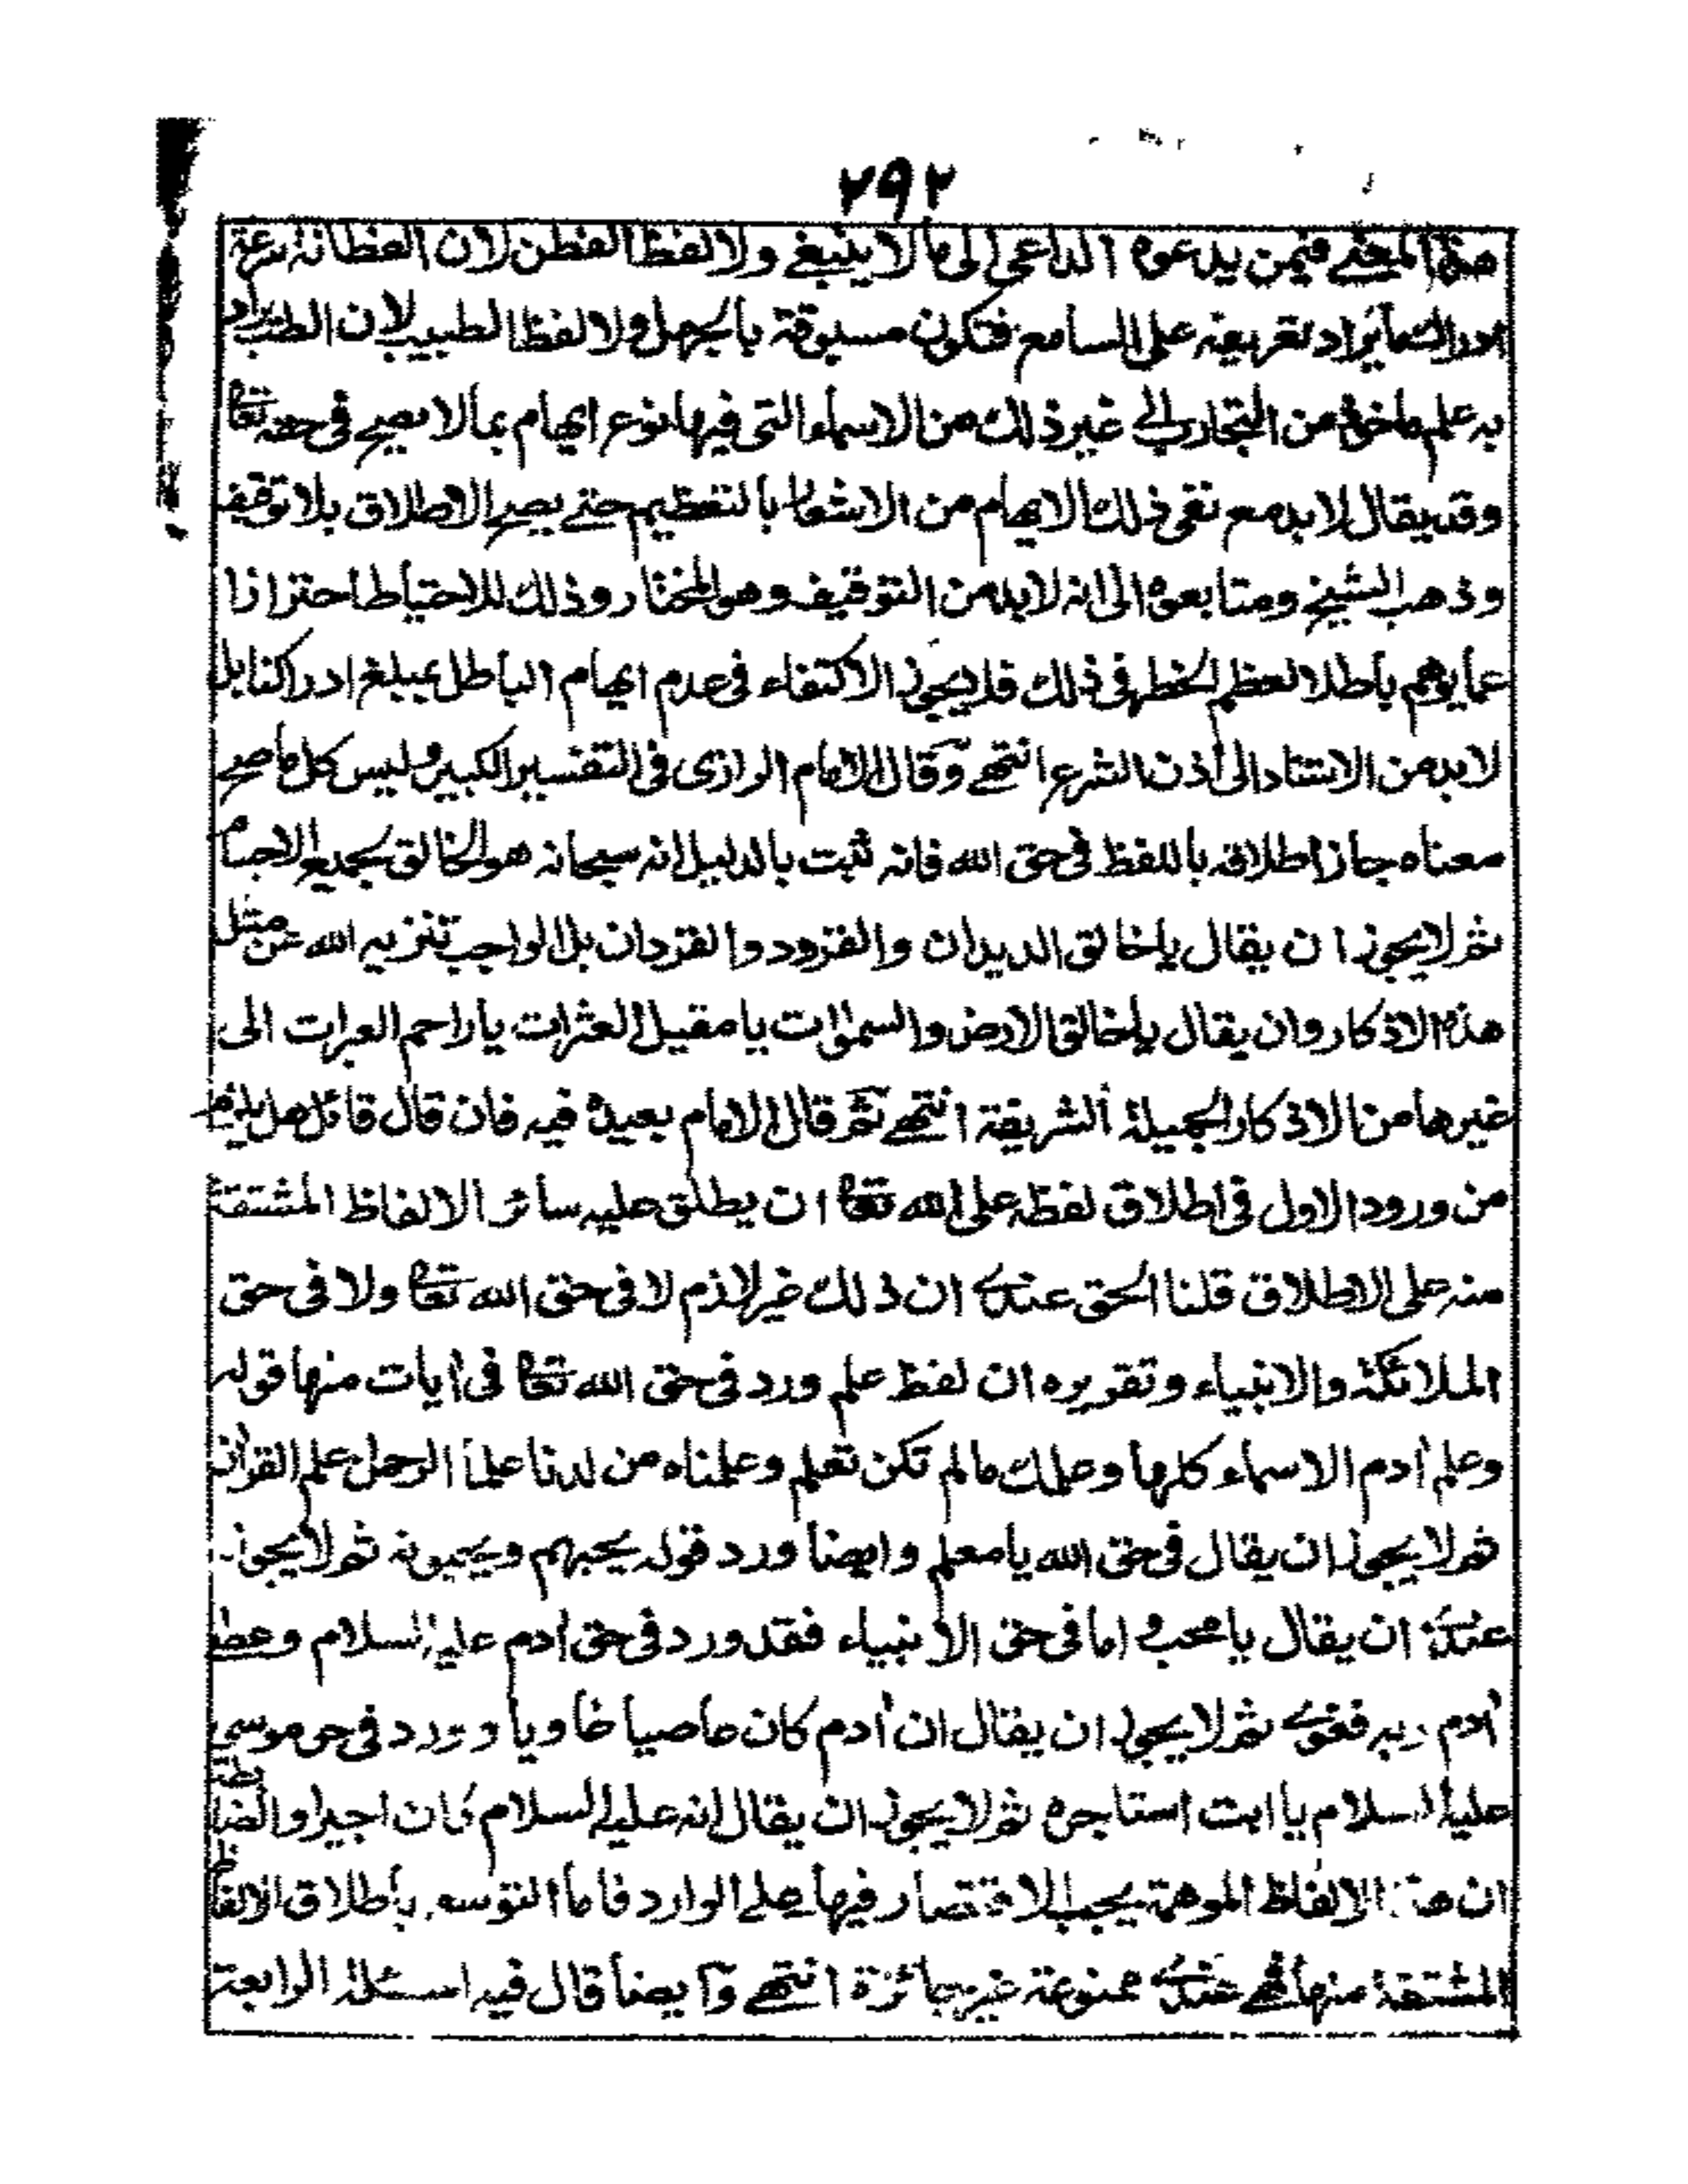 ٢٩٢
هذا المعنى فيمن يدعوه الداعى الى ما لا ينبغى ولا لفظ الفطن لان الفطانة سرعة
ادراك ما يراد تعريضه على السامع فتكون مسبوقة بالجهل ولا لفظ الطبيب لان الطب يراد
به علم ماخوذ من التجارب الى غير ذلك من الاسماء التى فيها نوع ايهام بما لا يصح فى حقه تعا
وقد يقال لا بد مع نفى ذلك الايهام من الاشعار بالتعظيم حتى يصح الاطلاق بلا توقيف
وذهب الشيخ ومتابعوه الى انه لا بد من التوقيف وهو المختار وذلك للاحتياط احترازا
عما يوهم باطلا لعظم الخطر فى ذلك فلا يجوز الاكتفاء فى عدم ايهام الباطل بمبلغ ادراكنا بل
لا بد من الاستناد الى اذن الشرع انتهى وقال الامام الرازى فى التفسير الكبير وليس كل ما صح
معناه جاز اطلاقه باللفظ فى حق الله فانه ثبت بالدليل انه سبحانه هو الخالق لجميع الاجسام
ثم لا يجوز ان يقال يا خالق الديدان والقرود والقردان بل الواجب تنزيه الله عن مثل
هذه الاذكار وان يقال يا خالق الارض والسموات يا مقيل العثرات يا راحم العبرات الى
غيرها من الاذكار الجميلة الشريفة انتهى ثم قال الامام بعيده فيه فان قال قائل هل يلزم
من ورود الاول فى اطلاق لفظه على الله تعا ان يطلق عليه سائر الالفاظ المشتقة
منه على الاطلاق قلنا الحق عندى ان ذلك غير لازم لا فى حق الله تعا ولا فى حق
الملائكة والانبياء وتقريره ان لفظ علم ورد فى حق الله تعا فى ايات منها قوله
وعلم ادم الاسماء كلها وعلمك ما لم تكن تعلم وعلمناه من لدنا علما الرحمن علم القران
ثم لا يجوز ان يقال فى حق الله يا معلم وايضا ورد قوله يحبهم ويحبونه ثم لا يجوز
عندى ان يقال يا محب و اما فى حق الانبياء فقد ورد فى حق ادم عليه السلام وعصى
ادم ربه فغوى ثم لا يجوز ان يقال ان ادم كان عاصيا غاويا وورد فى حق موسى
عليه السلام يا ابت استاجره ثم لا يجوز ان يقال انه عليه السلام كان اجيرا والضابطة
ان هذه الالفاظ الموهمة يجب الاقتصار فيها على الوارد فاما التوسع باطلاق الالفاظ
المشتقة منها فهى عندى ممنوعة غير جائزة انتهى وايضا قال فيه المسئلة الرابعة